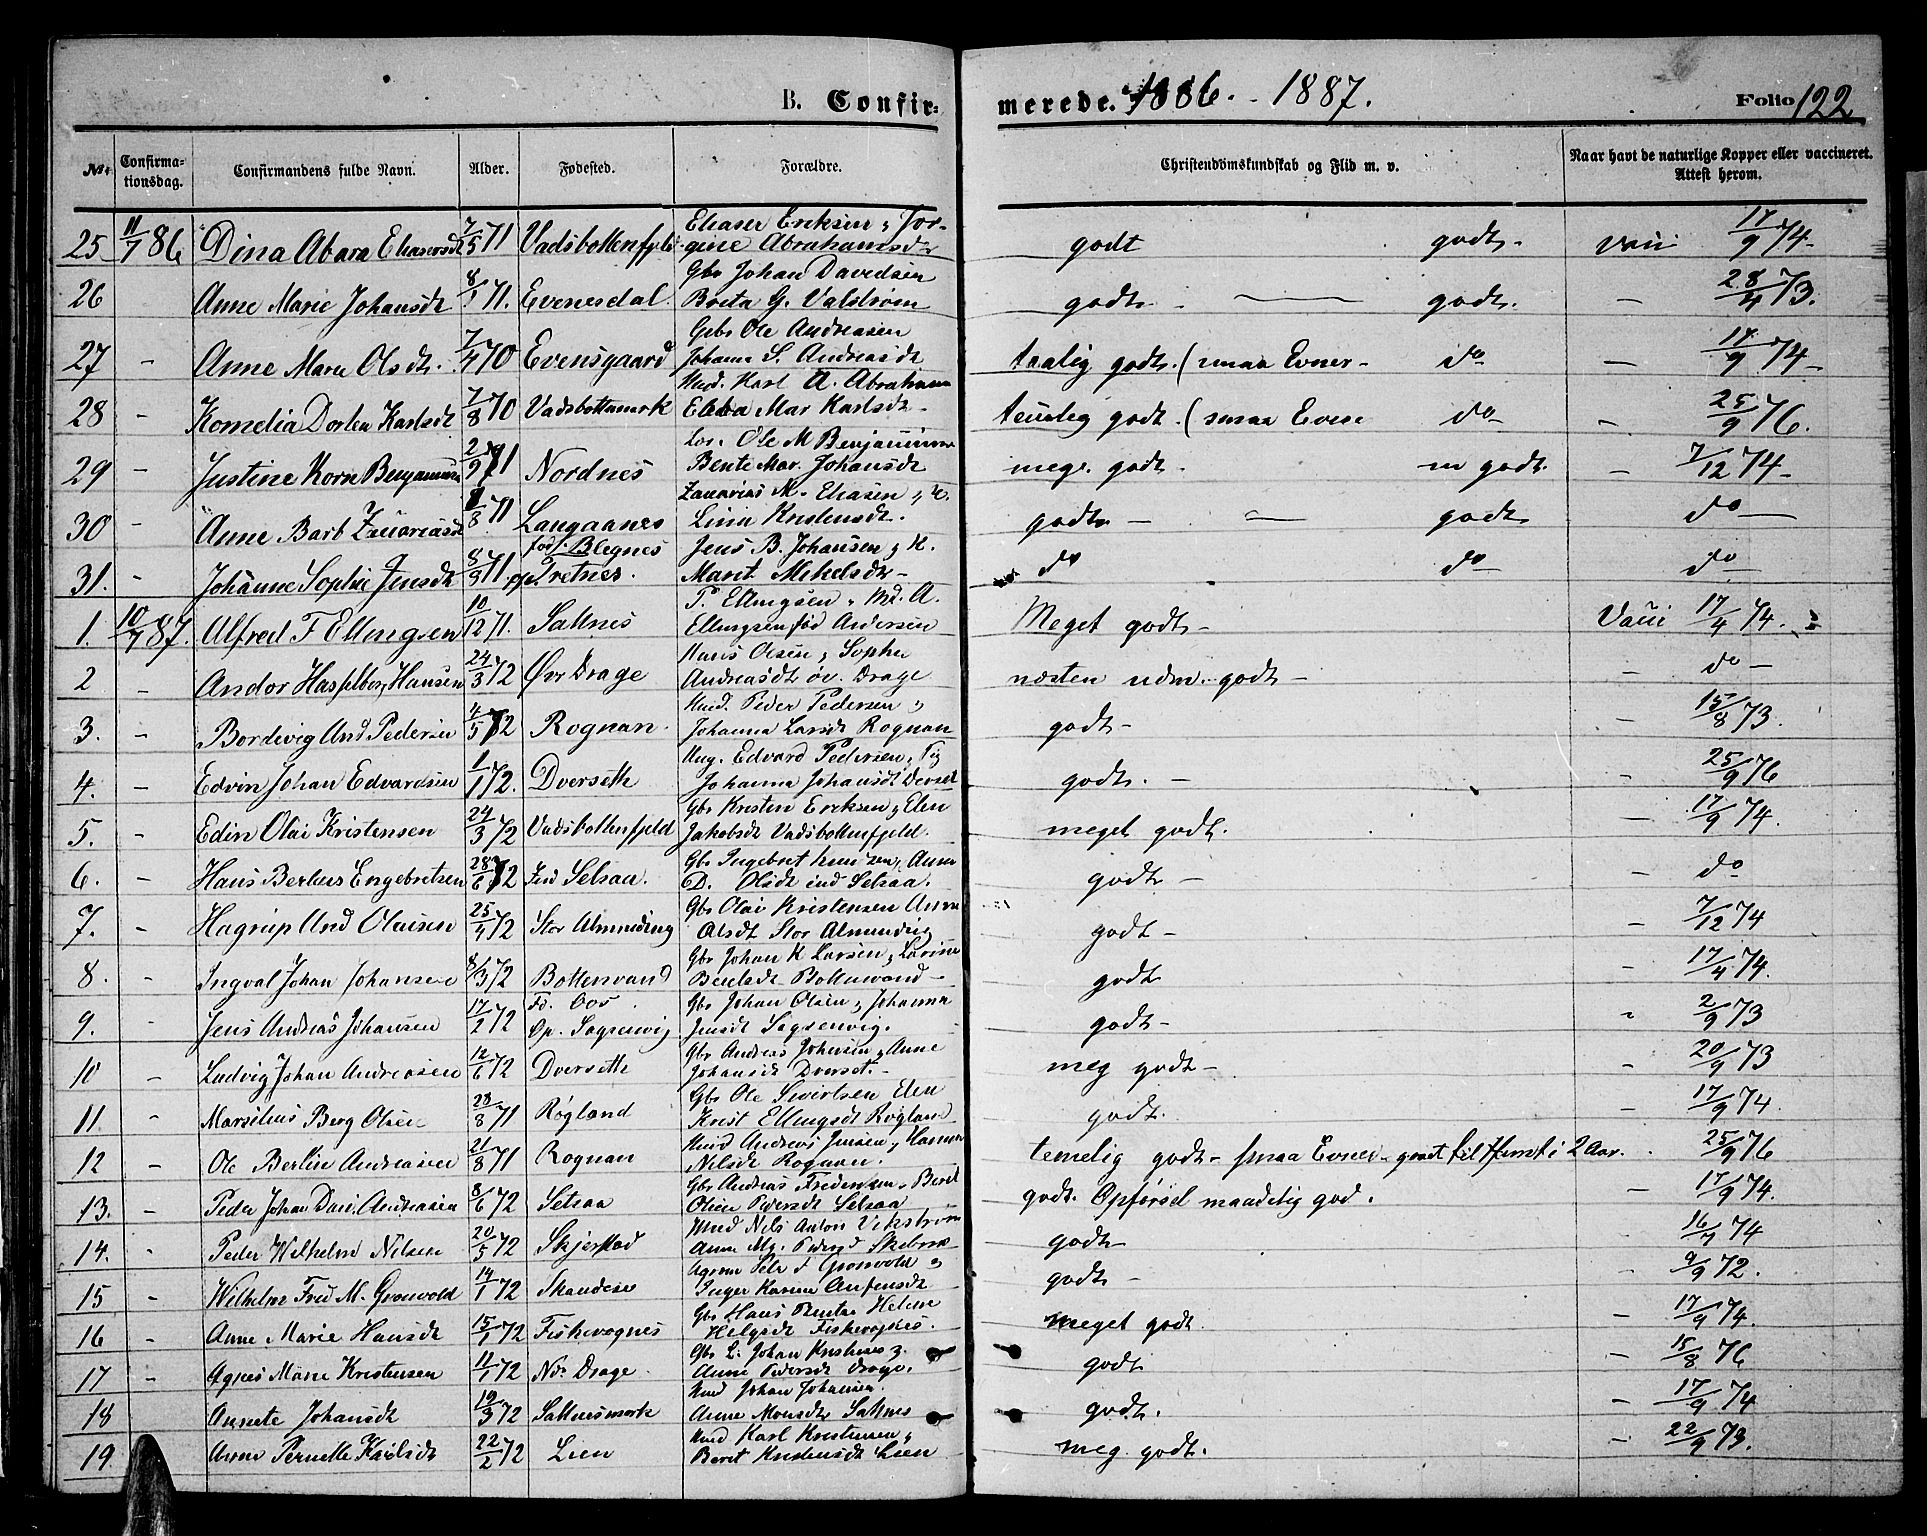 B. Confir- merede. 1886. - 1887. Folio 122
No. Confirma- tionsdag. Confirmandens fulde Navn. Alder. Fødested. Forældre. Christendomskundskab og Flid m. v. Naar havt de naturlige Kopper eller vaccineret. Attest herom.
25 11/7 86 Dina Abara Eliasersdt 7/5 71 Vadsbottenfjeld Eliaser Eriksen, Jor- godt godt - 17/9 74 -
gine Abrahamsdr
26 Anne Marie Johansdt 8/1 71. Evenesdal. Gbr Johan Davidsen godt - godt. - 28/4 73.
Breta G. Valstrøm
27 - Anne Marie Olsdt. 7/4 70 Evensgaard Gbr Ole Andreasen taalig godt. (smaa Evner - do - 17/9 74 -
Johanna S. Andreasdt
28 - Kornelia Dortea Karlsdt 7/8 70 Vadsbottmark Hmd. Karl A. Abraham temelig godt. (smaa Evne do - 25/9 76.
Mar Karlsdt -
29 - Justine Korn Benjamins 71 Nordnes Ole M Benjaminsen meg. godt - m godt. - 7/12 74 -
Bente Mar. Johansdt
30 - Anne Barb Zacariasdt 8/8 71 Langaanes Zacarias M. Eliasen godt - godt do -
Kristensdt.
31. - Johanne Sophie Jensdt 8/9 71. fød. Blegnes Jens B. Johansen, H. do do do
op. Tretnes. Marit Mikelsdr -
1. 10/7 87. Alfred F Ellingsen 10/12 71. Saltnes P. Ellingsen, Md. A. Meget godt - 17/4 74.
Ellingsen fød Andersen
2 - Andor Hasselberg Hansen 24/3 72 Øvr Drage Hans Olsen, Sophie næsten udm. godt - - do -
Andreasdt øv. Drage
3. - Bordevig And Pedersen 4/5 72 Rognan. Hmd. Peder Pedersen, godt - - 15/8 73.
Johanna Larsdt Rognan
4. - Edvin Johan Edvardsen 1/1 72. Dverseth Edvard Pedersen, godt. - - 25/9 76
Johanna Johansdt Dverset
5. - Edin Olai Kristensen 24/3 72 Vadsbottenfjeld Gbr Kristen Eriksen, Elen meget godt. - 17/9 74.
Jakobsdt Vadsbottenfjeld.
6. - Hans Berteus Engebretsen 28/6 72 Ind Setsaa. Gbr Ingebret Hansen, Anne godt - - do
D. Olsdt ind Setsaa.
7. - Hagrup And Olaisen 25/4 72 Stor Almending Gbr Olai Kristensen Anna godt - - 7/12 74
Olsdt Stor Almending
8. - Ingval Johan Johansen 8/3 72 Bottenvand Gbr Johan K Larsen, Lorine godt - 17/4 74.
Bottenvand -
9. - Jens Andreas Johansen 17/2 72 Fd. Oos Gbr Johan Olsen, Johanna godt - - 2/9 73
Op. Sagservig Jensdt Sagservig.
10 - Ludvig Johan Andreasen 12/6 72 Dverseth Gbr Andreas Johnsen, Anne meg godt - - 20/9 73
Johansdt Dverset. -
11 - Marsilius Berg Olsen 28/8 71 Røgland Gbr Ole Sivertsen Elen godt. - 17/9 74.
Krist Ellingsdt Røgland
12 - Ole Berlin Andreasen 21/8 71 Rognan Hmd Andreas Jensen, Hanna temelig godt - smaa Evner - 2 Aar. 25/9 76
Nilsdt Rognan.
13. - Peder Johan Dan. Andreasen 8/6 72 Setsaa Gbr Andreas Fredriksen, Berit godt. Opførsel maadelig god. - 17/9 74.
Olsen Pedersdt Setsaa
14. - Peder Wilhelm Nilsen 20/5 72 Skjerstad Hmd Nils Anton Vikstrøm godt - - 16/7 74
Anne Mg.
15 - Wilhelm Fred M. Gronvold 14/1 72 Gronvold godt - - 9/9 72.
Inger Karine
16 - Anne Marie Hansdt 15/1 72 Fiskevagnes Gbr Hans Helene meget godt - 17/9 74.
Helgsdt Fiskevagnes.
17 - Agnes Marie Kristensen 11/1 72 Nd. Drage. Gbr L. Johan Kristensen godt - 15/8 76
Anne Pedersdt Drage.
18 Annete Johansdt 19/3 72 Saltnesmark Hmd Johan Johansen. godt. - 17/9 74
Anne Monsdt Saltnes
19 Anne Pernelle Karlsdt 22/2 72 Lien Hmd Karl Kristensen, meg. godt. - 22/9 73.
Beret Kristensdt Lien